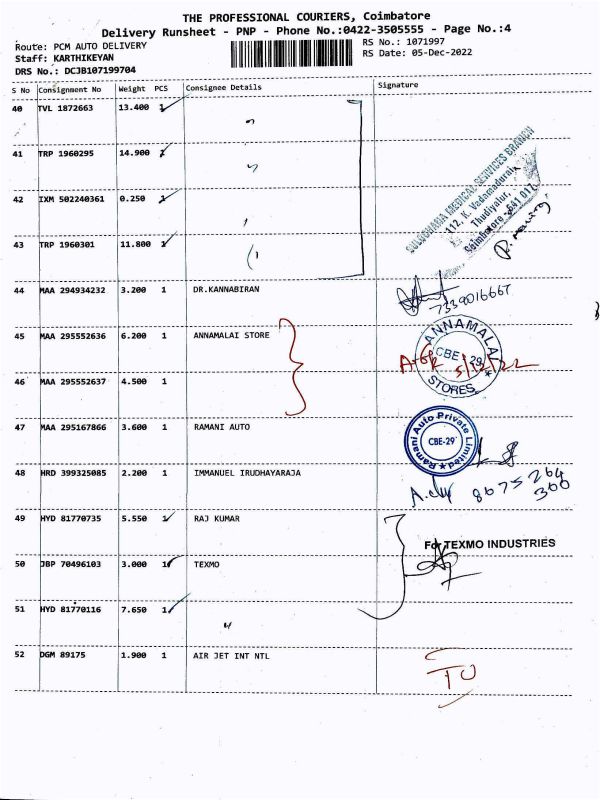 THE PROFESSIONAL COURIERS, Coimbatore
Delivery Runsheet - PNP - Phone No.:0422-3505555 - Page No.:4
Route: PCM AUTO DELIVERY
RS No.: 1071997
Staff: KARTHIKEYAN
RS Date: 05-Dec-2022
DRS No.: DCJB107199704
S No Consignment No Weight PCS Consignee Details Signature
40 TVL 1872663 13.400 1
41 TRP 1960295 14.900 1
42 IXM 502240361 0.250 1
43 TRP 1960301 11.800 1
SULOCHANA MEDICAL SERVICES BRANCH
112, K. Vadamadurai,
Thudiyalur,
Coimbatore - 641 017
44 MAA 294934232 3.200 1 DR.KANNABIRAN
7339016667
45 MAA 295552636 6.200 1 ANNAMALAI STORE
ANNAMALAI
CBE - 29
STORES
5/12/22
46 MAA 295552637 4.500 1
47 MAA 295167866 3.600 1 RAMANI AUTO
Ramani Auto Private Limited
CBE-29
48 HRD 399325085 2.200 1 IMMANUEL IRUDHAYARAJA
8675264
300
49 HYD 81770735 5.550 1 RAJ KUMAR
For TEXMO INDUSTRIES
50 JBP 70496103 3.000 1 TEXMO
51 HYD 81770116 7.650 1
52 DGM 89175 1.900 1 AIR JET INT NTL
TO